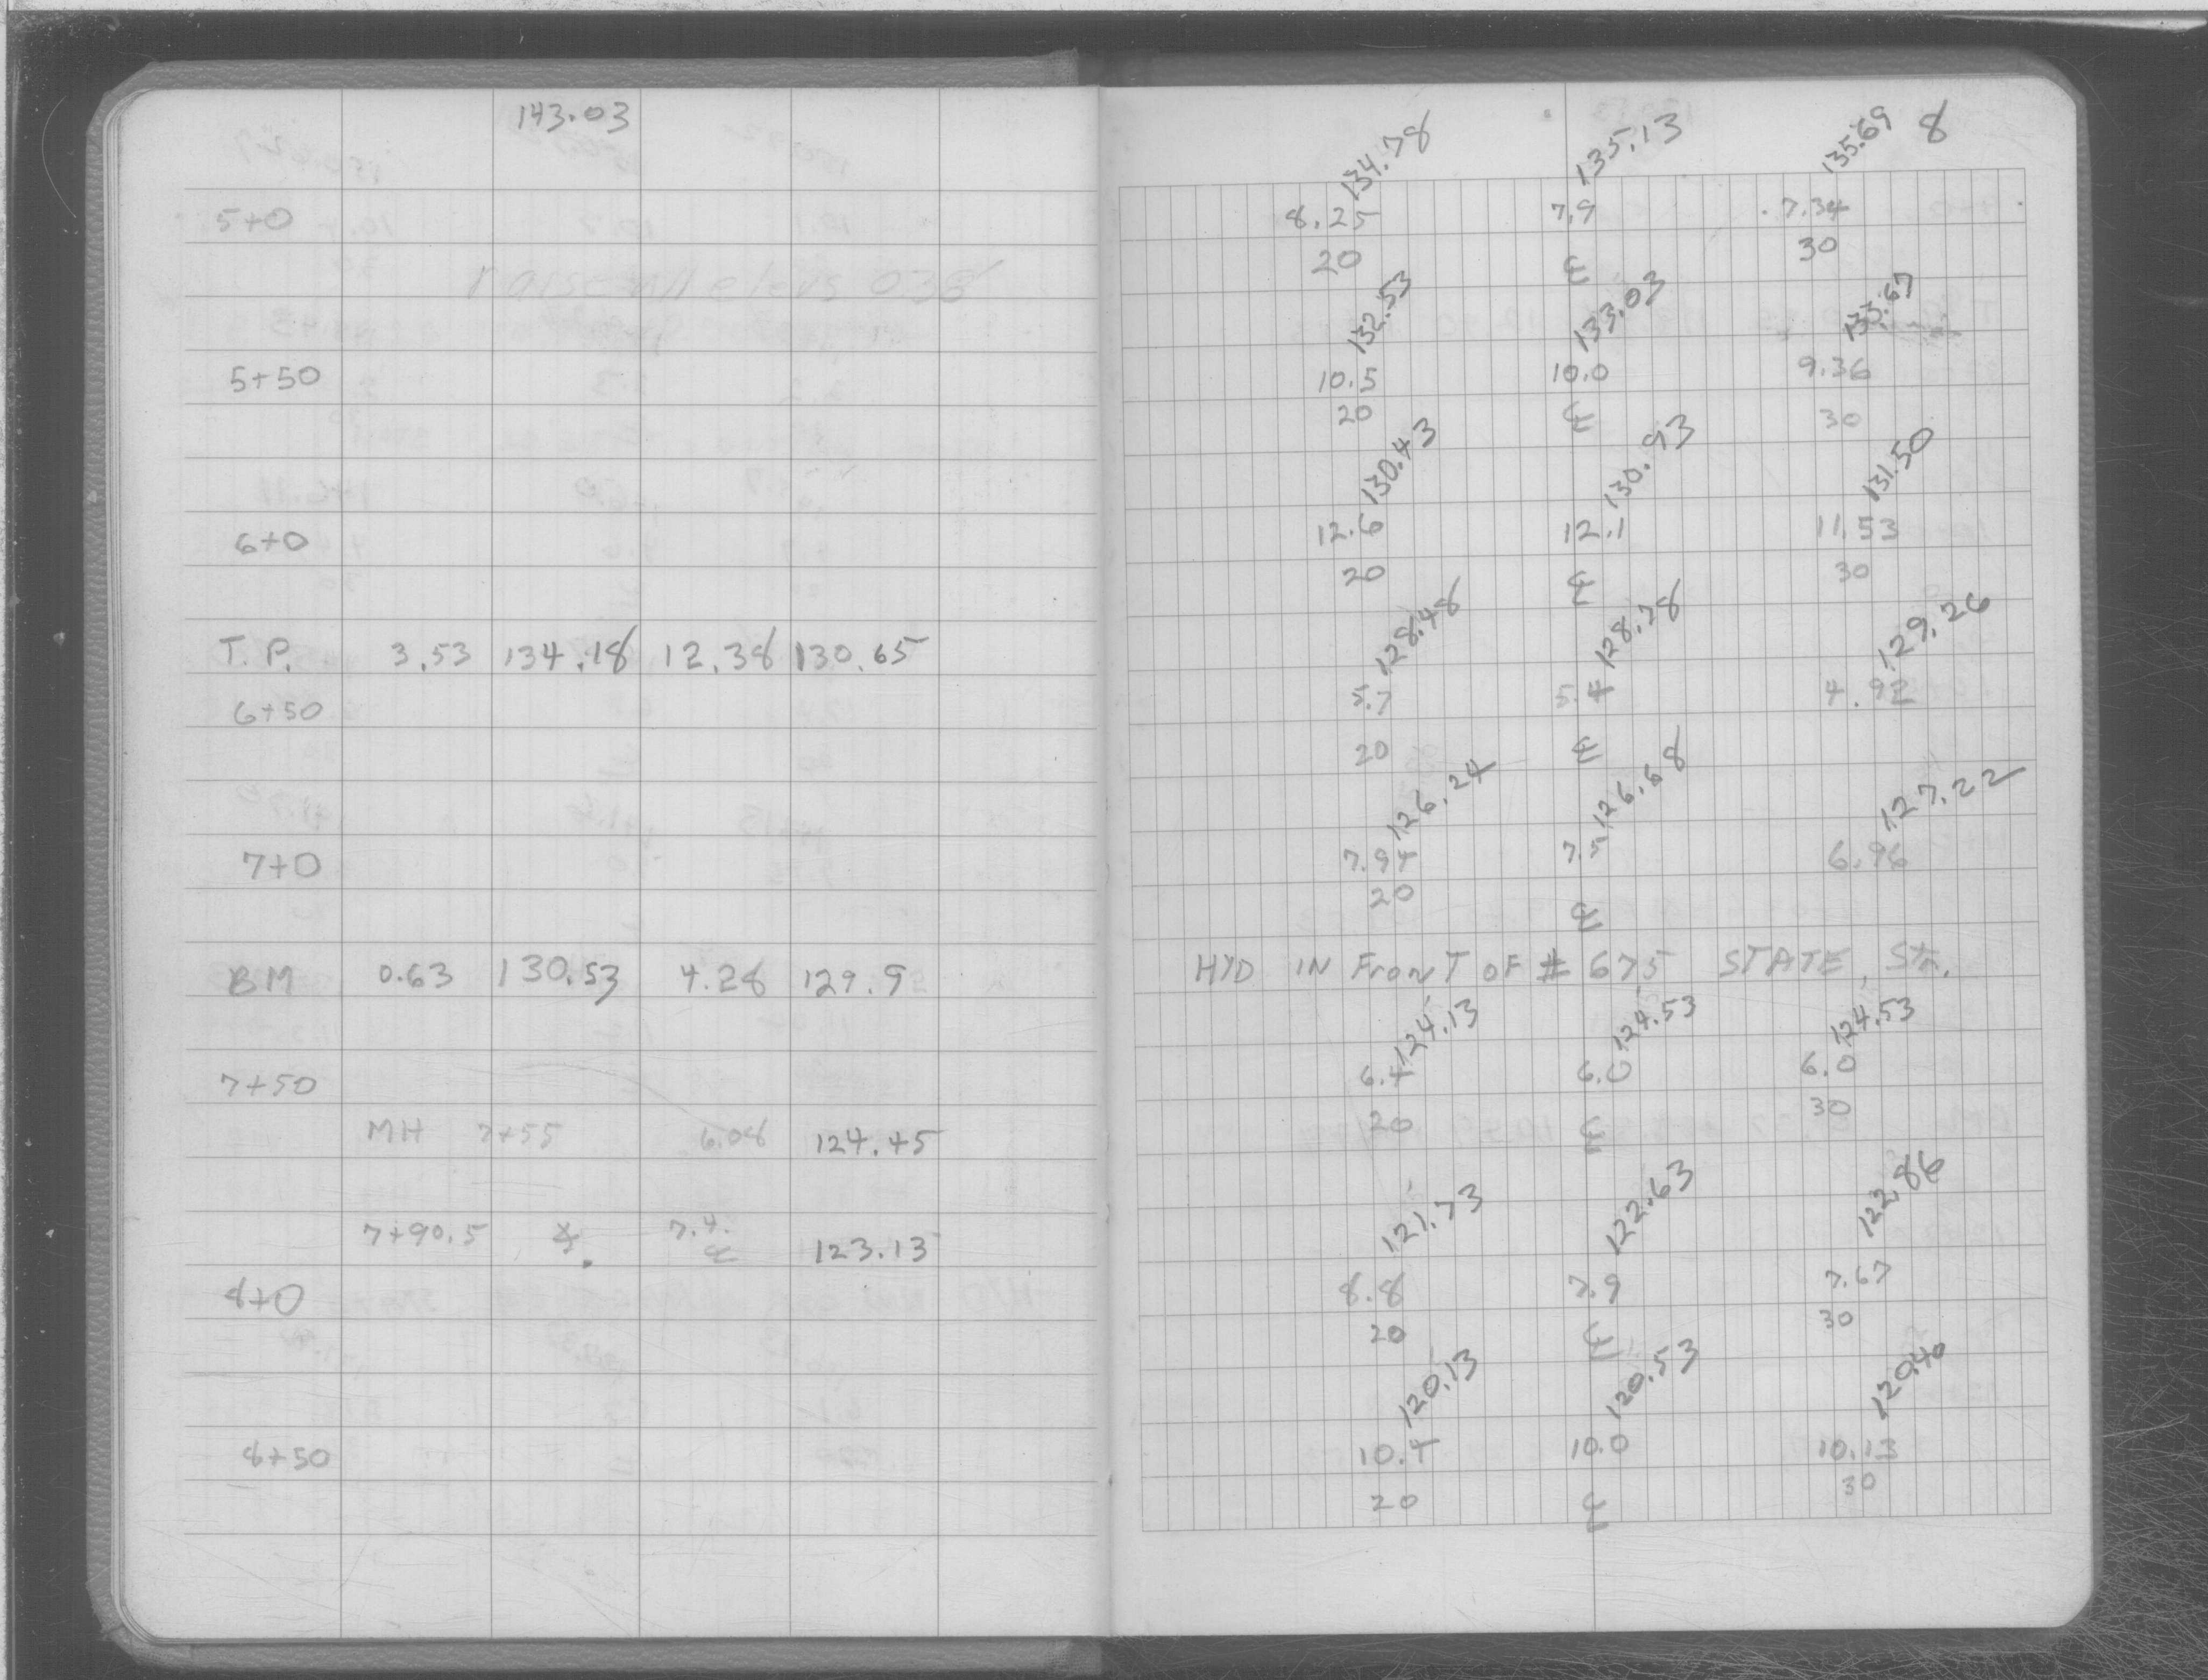 143.03
5+0
raise all elevs 0.38
5+50
6+0
T.P. 3.53 134.18 12.38 130.65
6+50
7+0
BM 0.63 130.53 4.28 129.9
7+50
MH 7+55 6.08 124.45
7+90.5 7.4 123.13
8+0
8+50
8
134.78 135.13 135.69
8.25 7.9 7.34
20 ℄ 30
132.53 133.03 133.67
10.5 10.0 9.36
20 ℄ 30
130.43 130.93 131.50
12.6 12.1 11.53
20 ℄ 30
128.48 128.78 129.26
5.7 5.4 4.92
20 ℄
126.24 126.68 127.22
7.94 7.5 6.96
20 ℄
HYD IN FronT OF # 675 STATE ST.
124.13 124.53 124.53
6.4 6.0 6.0
20 ℄ 30
121.73 122.63 122.86
8.8 7.9 7.67
20 ℄ 30
120.13 120.53 120.40
10.4 10.0 10.13
20 ℄ 30